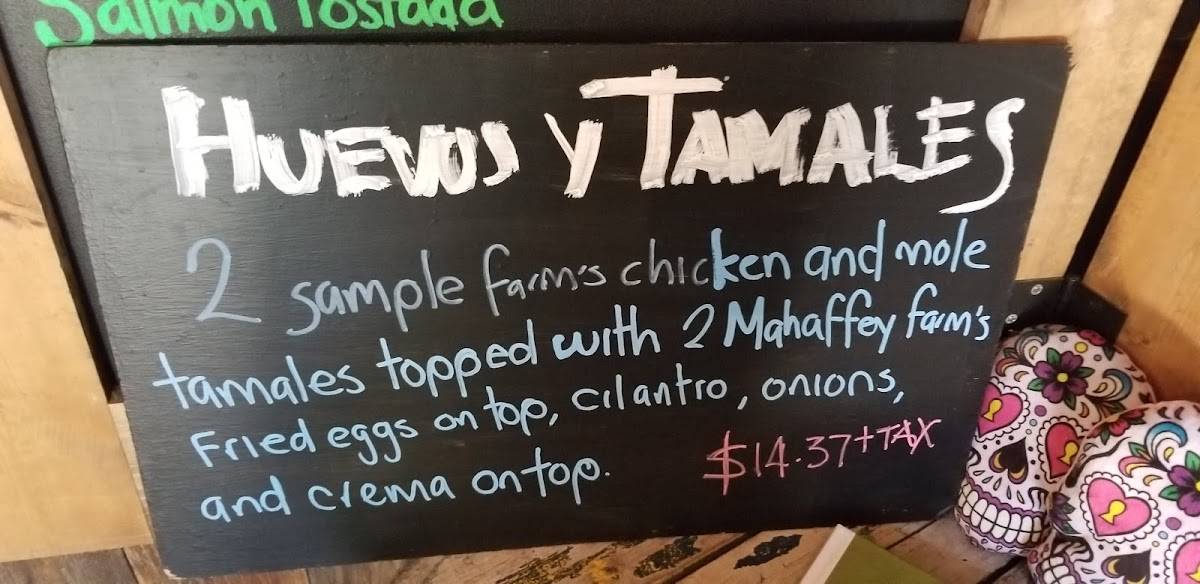 Salmon Tostada
HUEVOS Y TAMALES
2 sample farm's chicken and mole
tamales topped with 2 Mahaffey farm's
Fried eggs on top, cilantro, onions,
and crema on top.
$14.37+TAX